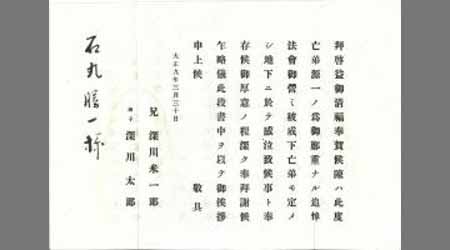 拜啓益御清福奉賀候陳ハ此度
亡弟源一ノ爲御鄭重ナル追悼
法會御營ミ被成下亡弟モ定メ
シ地下ニ於テ感泣致候事ト奉
存候御厚意ノ程深ク奉拜謝候
乍略儀此段書中ヲ以テ御挨拶
申上候 敬具
大正九年三月三十日
兄 深川米一郎
深川太郎
石丸勝一様